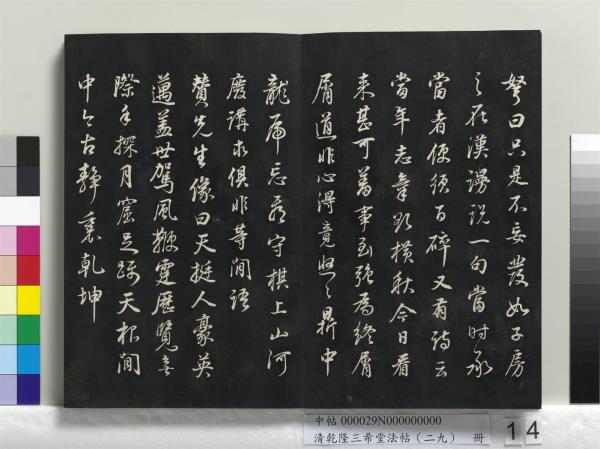 弩曰只是不妄發如子房
之在漢謾說一句當時承
當者便須百碎又有詩云
當年志氣欲橫秋今日看
來甚可羞事到強為終屑
屑道非心得竟悠悠鼎中
龍虎忘看守棋上山河
廢講求俱非等閒語
贊先生像曰天挺人豪英
邁蓋世駕風鞭霆歷覽無
際手探月窟足躡天根閒
中今古靜裏乾坤
中帖 000029N000000000
清乾隆三希堂法帖（二九） 冊 14